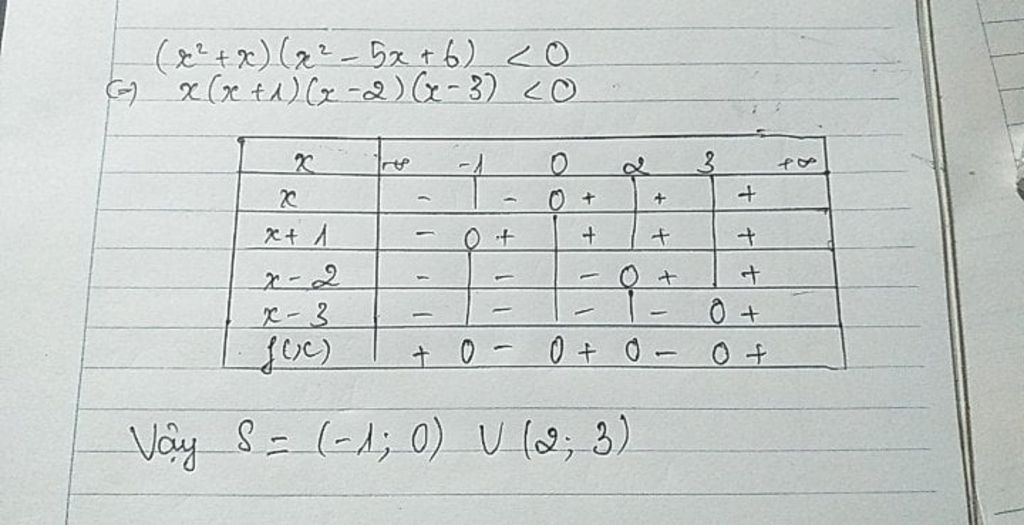 (x² + x)(x² - 5x + 6) < 0
(=) x(x + 1)(x - 2)(x - 3) < 0
x -∞ -1 0 2 3 +∞
x - | - 0 + | + | +
x + 1 - 0 + | + | + | +
x - 2 - | - | - 0 + | +
x - 3 - | - | - | - 0 +
f(x) + 0 - 0 + 0 - 0 +
Vậy S = (-1; 0) ∪ (2; 3)